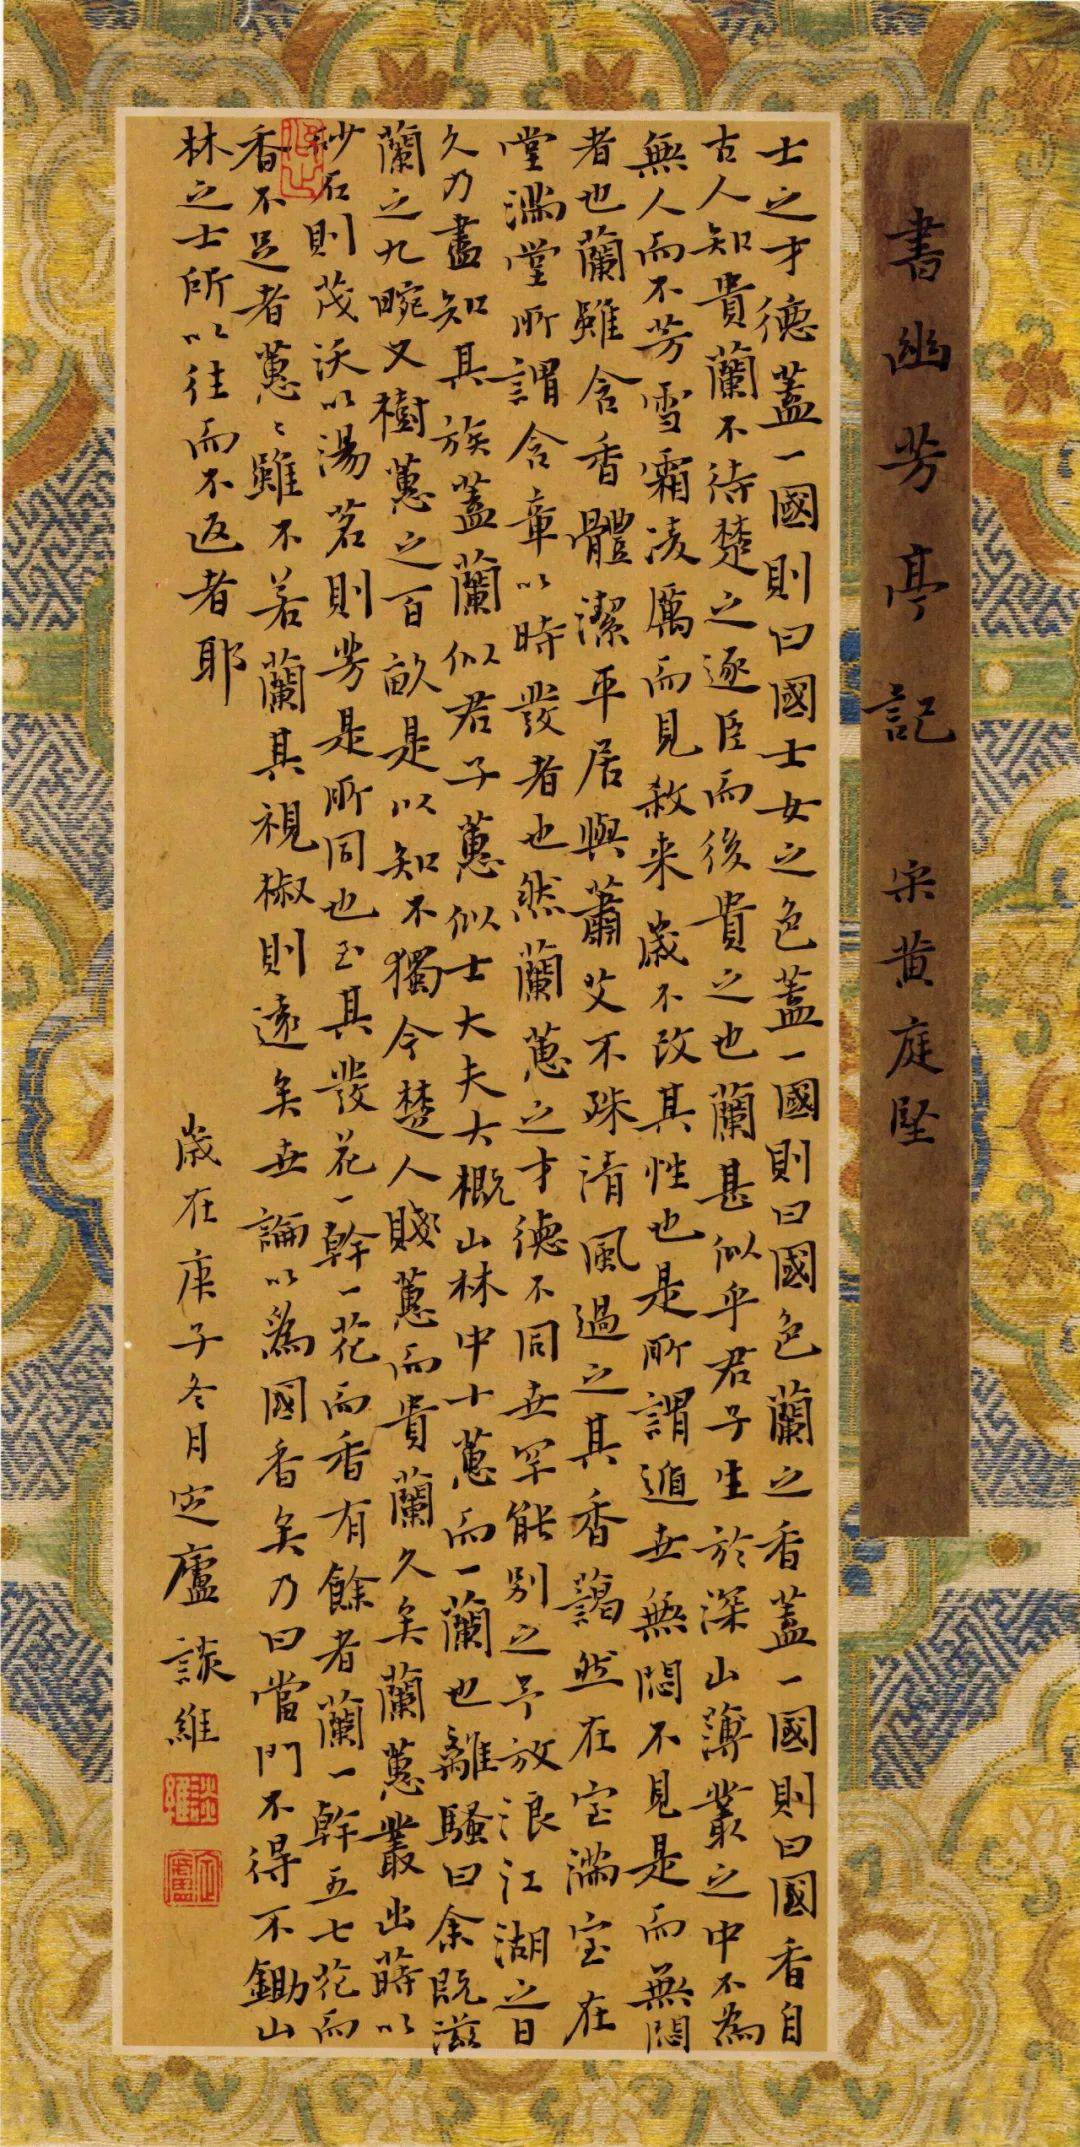 書幽芳亭記 宋黄庭堅
士之才德蓋一國則曰國士女之色蓋一國則曰國色蘭之香蓋一國則曰國香自
古人知貴蘭不待楚之逐臣而後貴之也蘭甚似乎君子生於深山薄叢之中不為
無人而不芳雪霜凌厲而見殺来歲不改其性也是所謂遁世無悶不見是而無悶
者也蘭雖含香體潔平居與蕭艾不殊清風過之其香藹然在室滿室在
堂滿堂所謂含章以時發者也然蘭蕙之才德不同世罕能别之予放浪江湖之日
久乃盡知其族蓋蘭似君子蕙似士大夫大概山林中十蕙而一蘭也離騷曰余既滋
蘭之九畹又樹蕙之百畝是以知不獨今楚人賤蕙而貴蘭久矣蘭蕙叢出蒔以
砂石則茂沃以湯茗則芳是所同也至其發花一幹一花而香有餘者蘭一幹五七花而
香不足者蕙〻雖不若蘭其視椒則遠矣世論以為國香矣乃曰當門不得不鋤山
林之士所以往而不返者耶
歲在庚子冬月定廬談維
談維
定廬